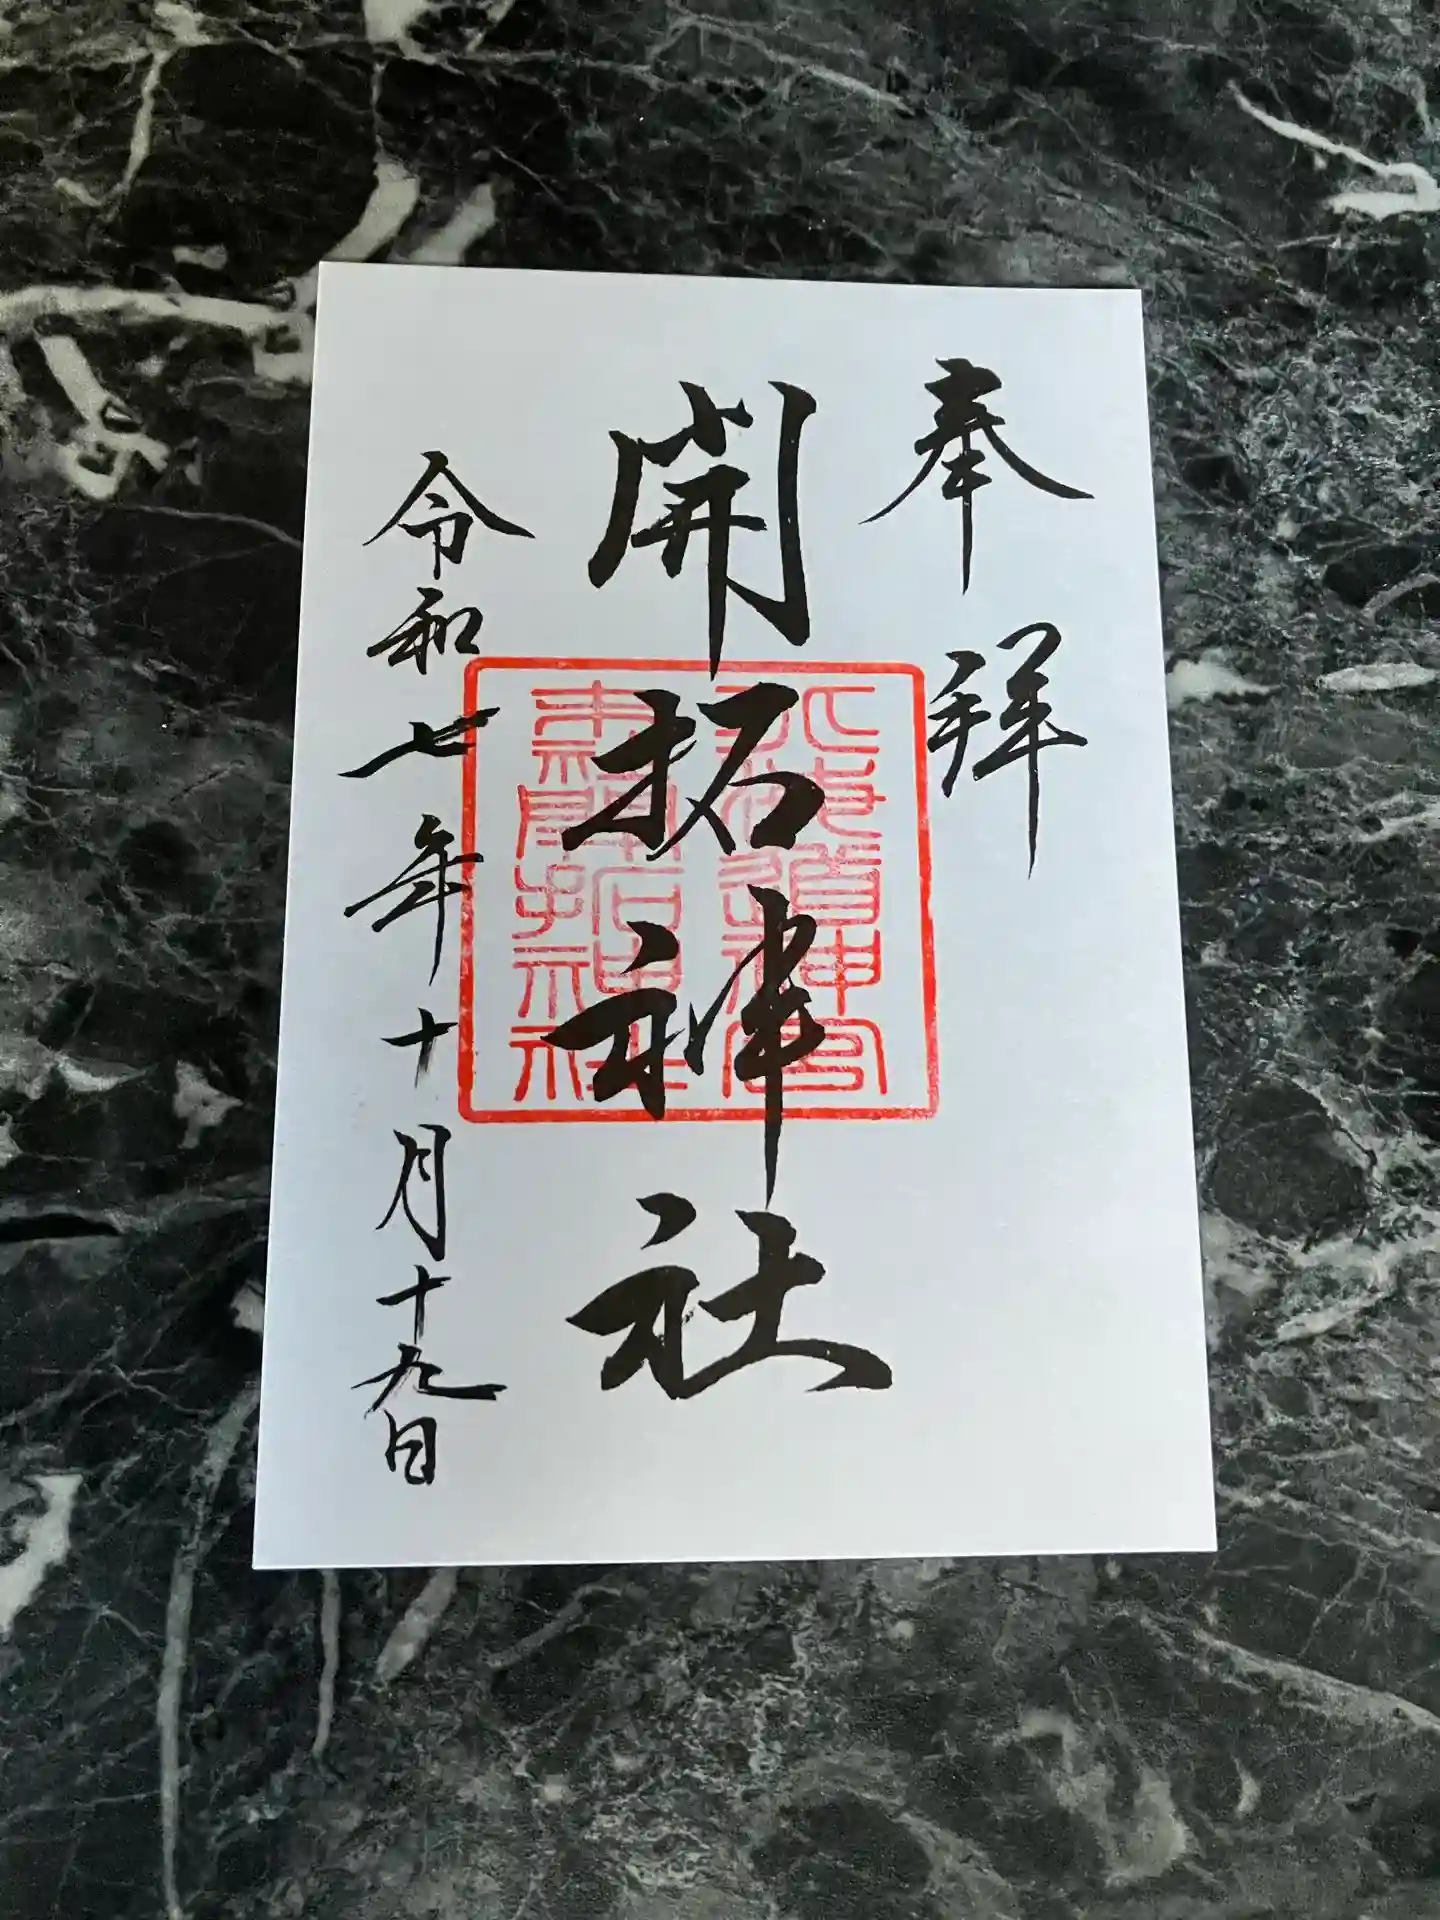 奉拝
開拓神社
令和七年十月十九日
北海道神宮
末社開拓神社